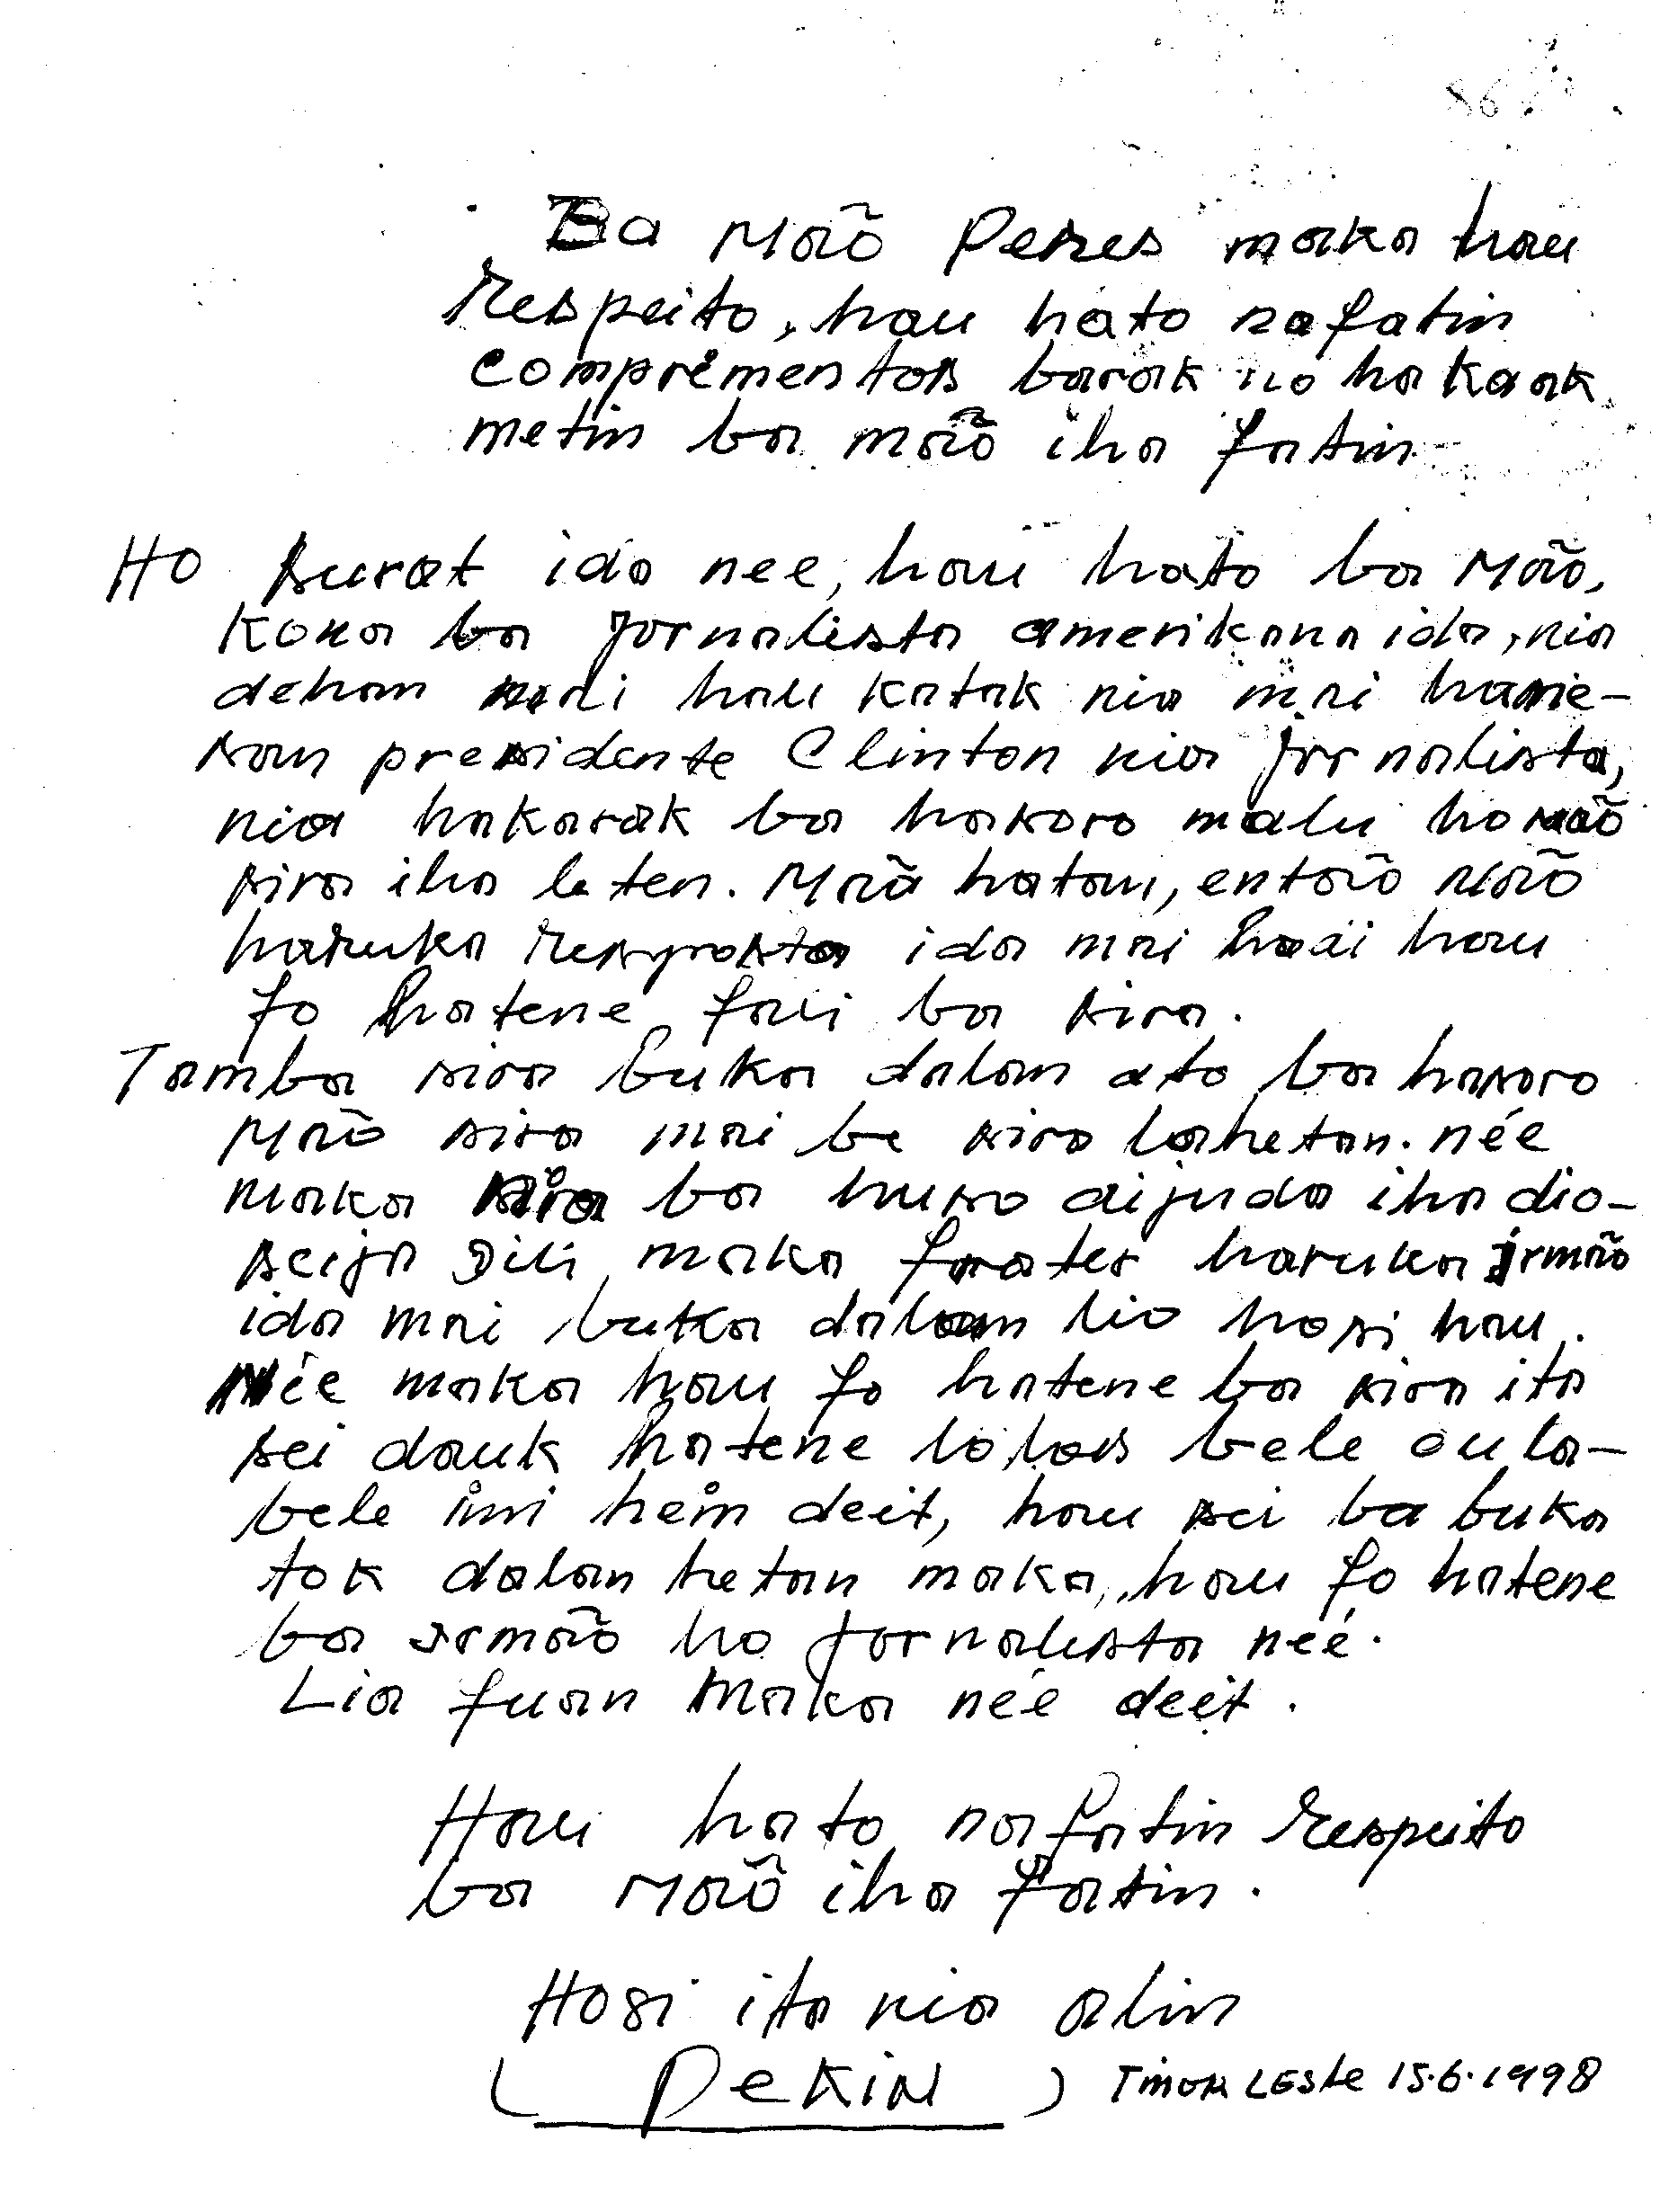 86
Ba Maõ Peres maka hau
respeito, hau hato nafatin
comprimentos barak no hakaak
metin ba maõ iha fatin
Ho surat ida nee, hau hato ba Maõ,
Kona ba jornalista amerikana ida, nia
dehan mai hau katak nia mai hanie-
san presidente Clinton nia jornalista,
nia hakarak ba hasoro malu ho maõ
sira iha leten. Maõ hatoui, entaõ maõ
haruka resposta ida mai hodi hau
fo hatene fali ba sira.
Tamba sira buka dalan ato ba hasoro
Maõ sira mai be sira laheton. née
maka sira ba huso aijuda iha dio-
seija Dili, maka frater haruka irmão
ida mai buka dalan lio hosi hau.
Née maka hau fo hatene ba sira ita
sei dauk hatene lolos bele ou la-
bele imi hein deit, hau sei ba buka
tok dalan hetan maka, hau fo hatene
ba irmaõ ho jornalista née.
Lia fuan maka née deit.
Hau hato nafatin respeito
ba Maõ iha fatin.
Hosi ita nia alin
( Pekin ) Timor Leste 15.6.1998